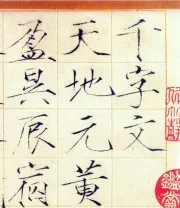 千字文
天地元黃
盈昃辰宿